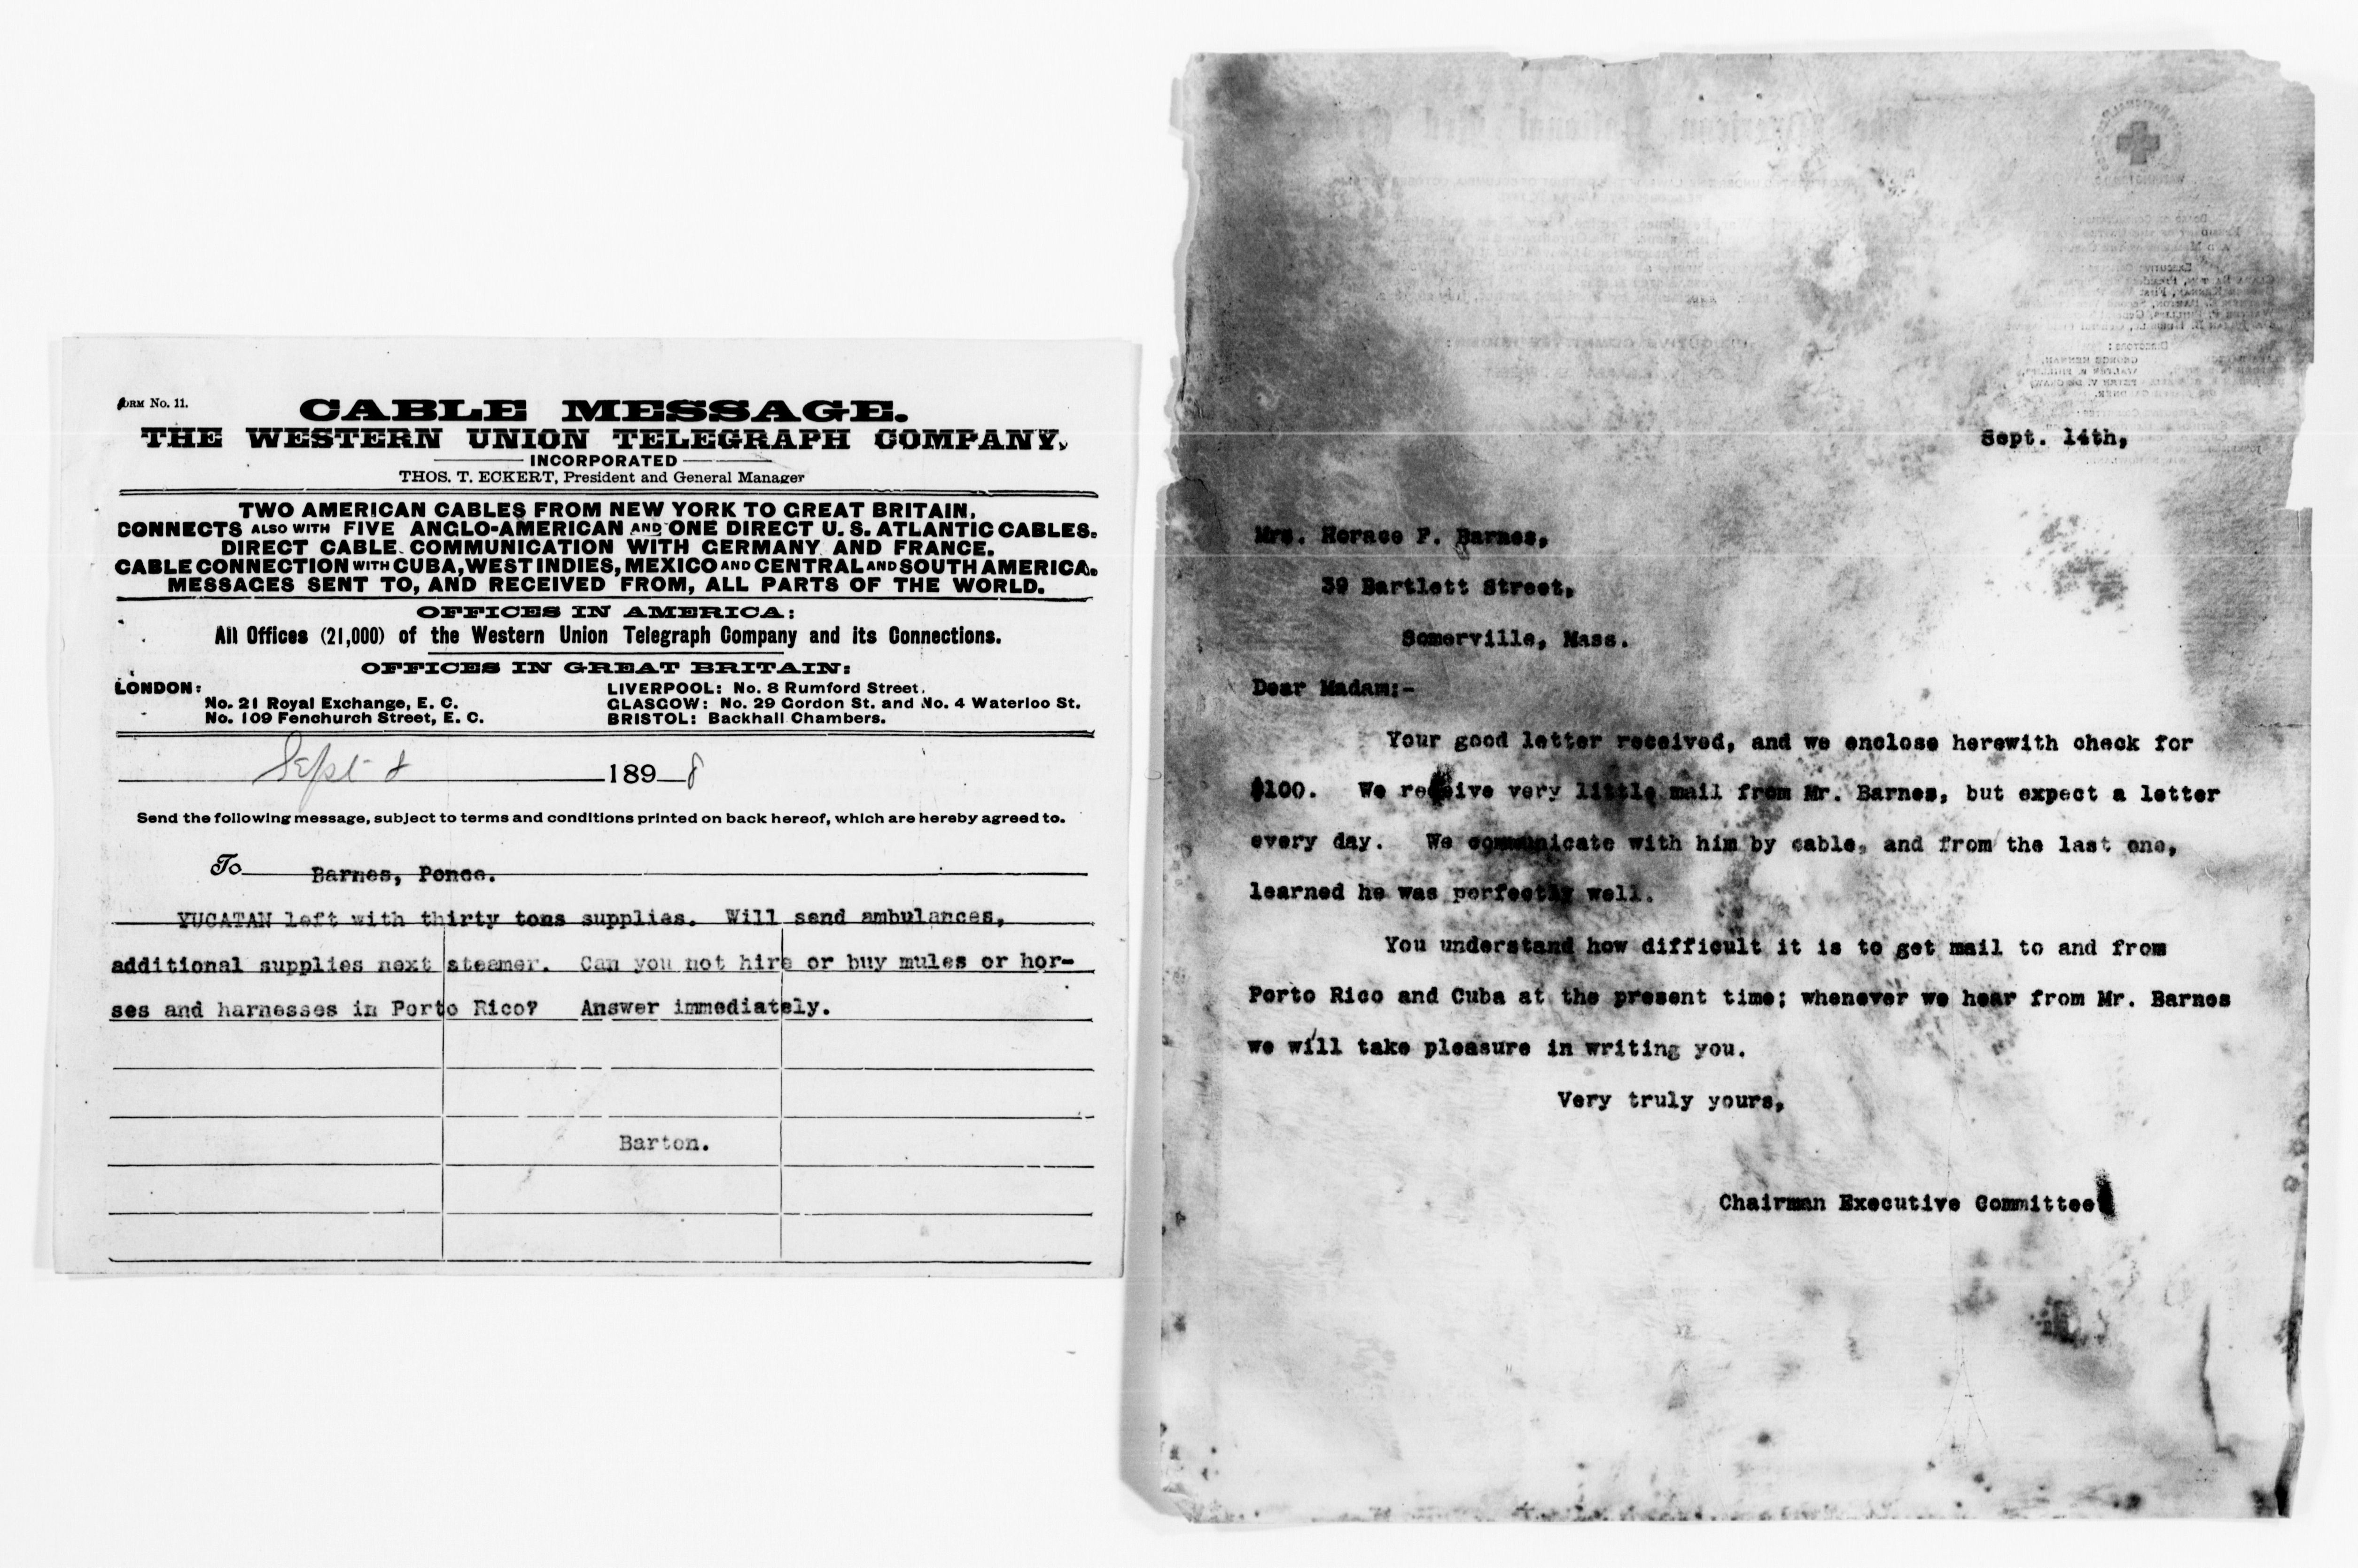 FORM No. 11.
CABLE MESSAGE.
THE WESTERN UNION TELEGRAPH COMPANY,
INCORPORATED
THOS. T. ECKERT, President and General Manager
TWO AMERICAN CABLES FROM NEW YORK TO GREAT BRITAIN.
CONNECTS ALSO WITH FIVE ANGLO-AMERICAN AND ONE DIRECT U. S. ATLANTIC CABLES.
DIRECT CABLE COMMUNICATION WITH GERMANY AND FRANCE.
CABLE CONNECTION WITH CUBA, WEST INDIES, MEXICO AND CENTRAL AND SOUTH AMERICA.
MESSAGES SENT TO, AND RECEIVED FROM, ALL PARTS OF THE WORLD.
OFFICES IN AMERICA:
All Offices (21,000) of the Western Union Telegraph Company and its Connections.
OFFICES IN GREAT BRITAIN:
LONDON:
No. 21 Royal Exchange, E. C.
No. 109 Fenchurch Street, E. C.
LIVERPOOL: No. 8 Rumford Street.
GLASGOW: No. 29 Gordon St. and No. 4 Waterloo St.
BRISTOL: Backhall Chambers.
Sept 8 1898
Send the following message, subject to terms and conditions printed on back hereof, which are hereby agreed to.
To Barnes, Ponce.
YUCATAN left with thirty tons supplies. Will send ambulances,
additional supplies next steamer. Can you not hire or buy mules or hor-
ses and harnesses in Porto Rico? Answer immediately.
Barton.
The American National Red Cross
Sept. 14th,
Mrs. Horace F. Barnes,
39 Bartlett Street,
Somerville, Mass.
Dear Madam:-
Your good letter received, and we enclose herewith check for
$100. We receive very little mail from Mr. Barnes, but expect a letter
every day. We communicate with him by cable, and from the last one,
learned he was perfectly well.
You understand how difficult it is to get mail to and from
Porto Rico and Cuba at the present time; whenever we hear from Mr. Barnes
we will take pleasure in writing you.
Very truly yours,
Chairman Executive Committee